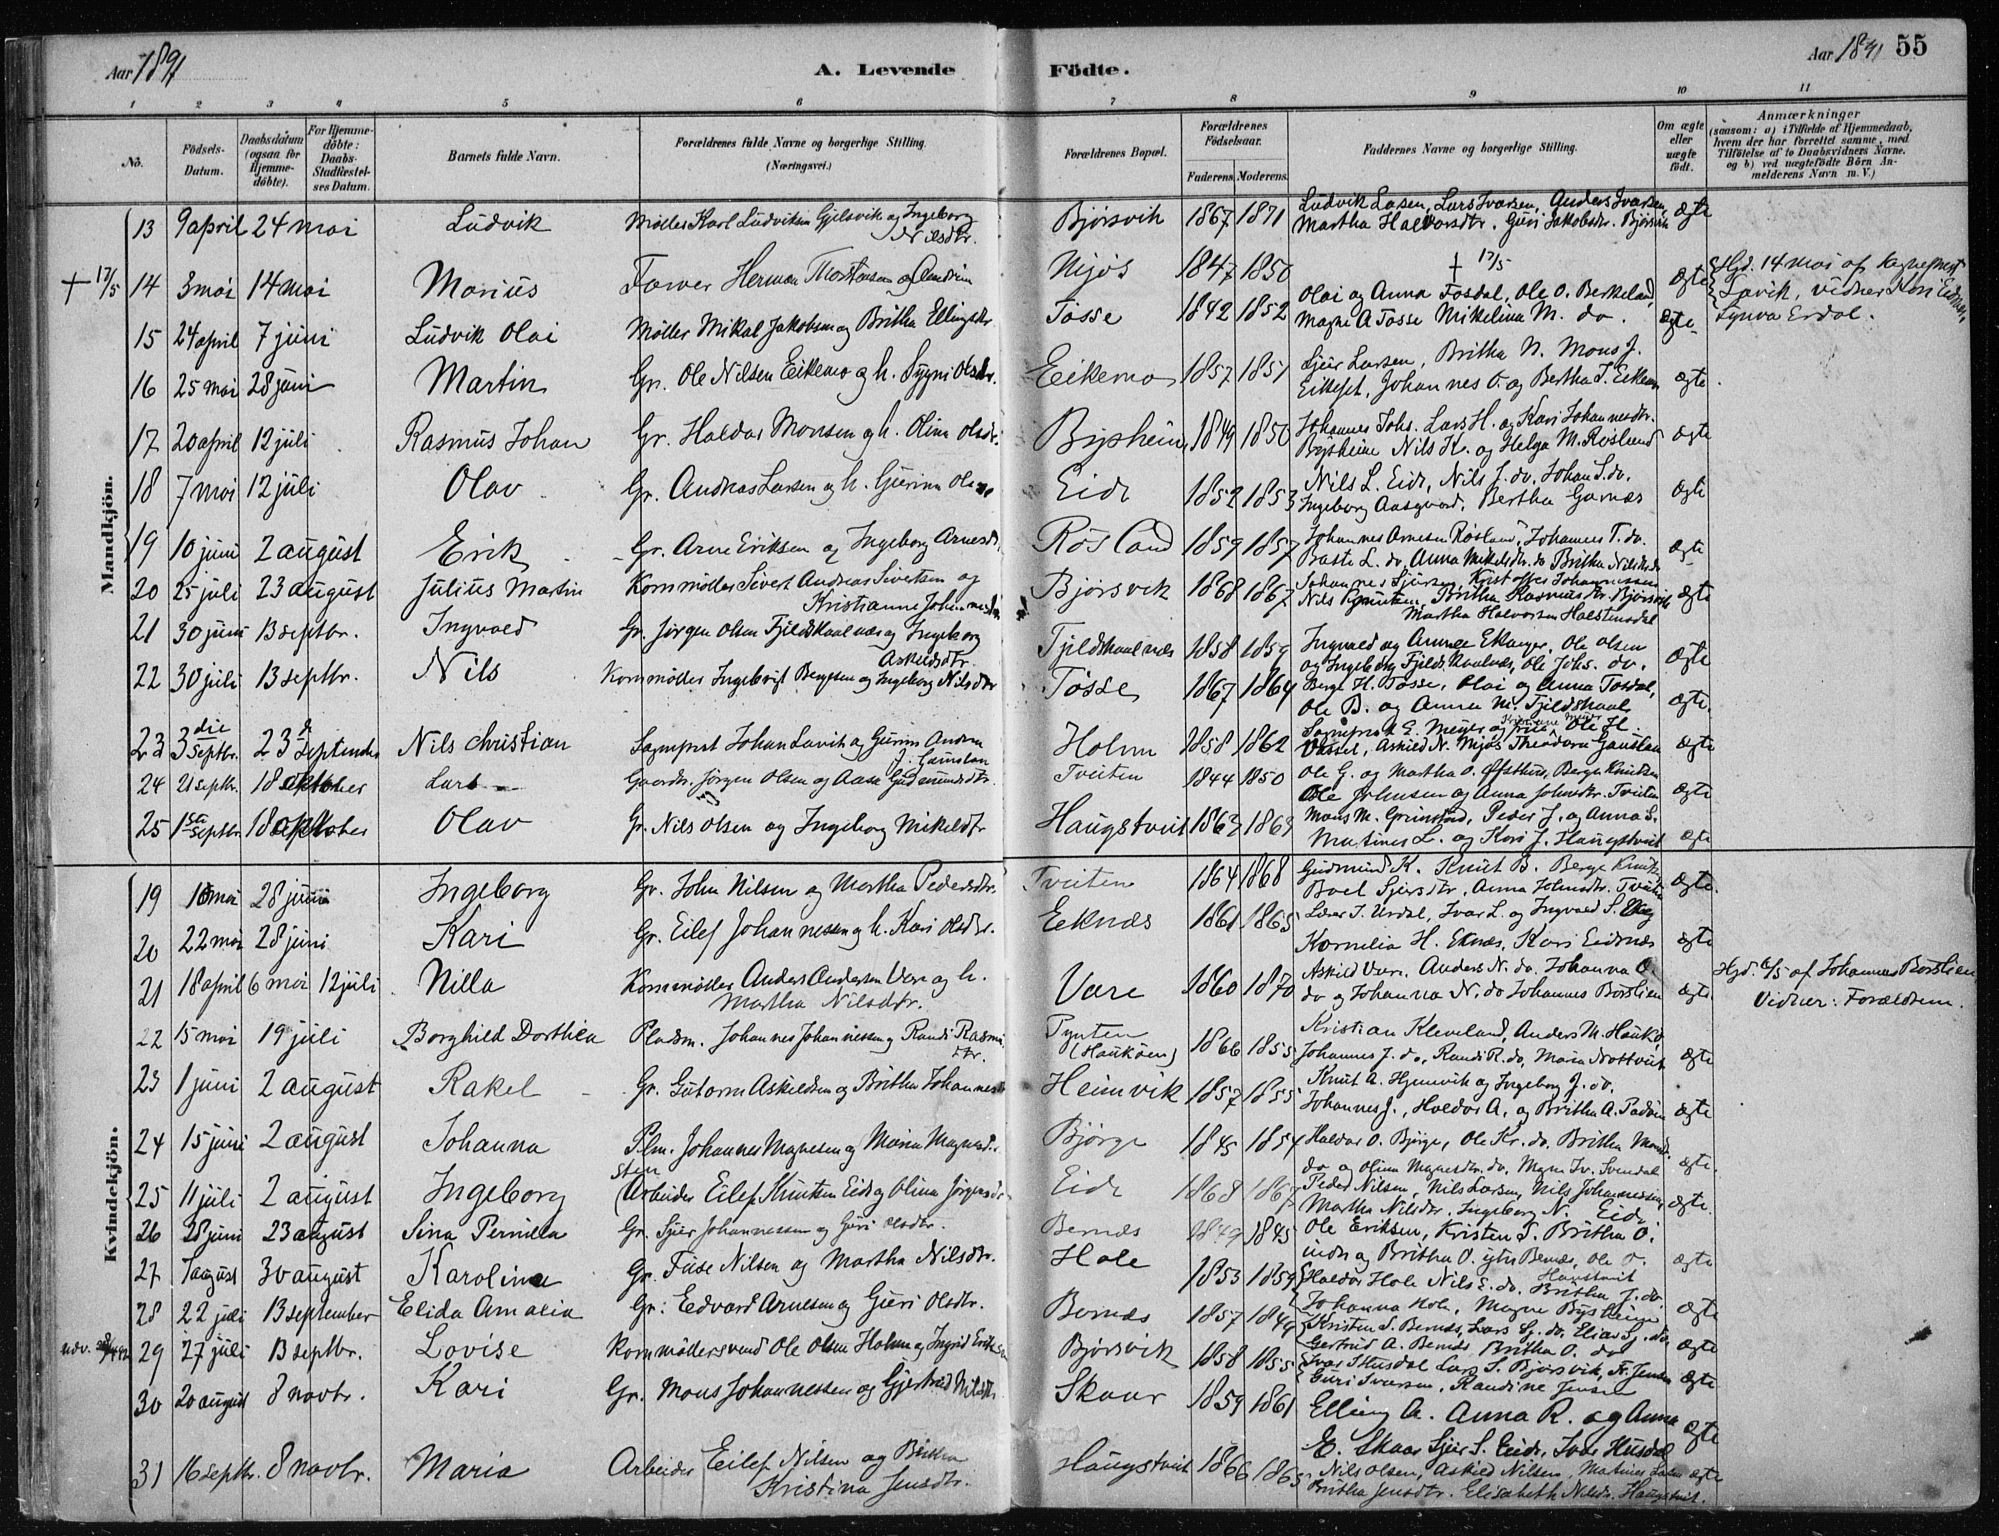 Aar 1891
A. Levende Födte.
Aar 1891 55
1 2 3 4 5 6 7 8 9 10 11
No. Födsels-Datum. Daabsdatum (ogsaa for Hjemmedöbte). For Hjemmedöbte: Daabs-Stadfæstelses Datum. Barnets fulde Navn. Forældrenes fulde Navne og borgerlige Stilling. (Næringsvei.) Forældrenes Bopæl. Forældrenes Födselsaar. Faderens. Moderens. Faddernes Navne og borgerlige Stilling. Om ægte eller uægte födt. Anmærkninger (saasom: a) i Tilfælde af Hjemmedaab, hvem der har forrettet samme, med Tilföielse af to Daabsvidners Navne. og b) ved uægtefödte Börn Anmelderens Navn m. V.)
Mandkjön.
13 9 april 24 mai Ludvik Møller Karl Ludviksen Gjelsvik og Ingeborg Nilsdtr. Bjørsvik 1867 1871 Ludvik Lasen, Lars Ivarsen, Anders Ivarsen, Martha Halvorsdtr. Guri Jakobsdr. Bjørsvik ægte
+ 17/5 14 3 mai 14 mai Marius Farver Herman Thorstensen og Andrine Mjøs 1847 1850 + 17/5 ægte Hjd. 14 mai af Sognefrest Lavik, vidner
15 24 april 7 juni Ludvik Olai Møller Mikal Jakobsen og Britha Ellingsdr. Tøsse 1842 1852 Olai og Anna Tosdal, Ole O. Berkeland, Magne A Tøsse Mikelina M. do. ægte
16 25 mai 28 juni Martin Gr. Ole Nilsen Eikemo og h. Sygni Olsdr. Eikemo 1857 1851 Sjur Larsen, Britha N. Mons J. Eikefet, Johannes O. og Bertha T. Eikemo ægte
17 20 april 12 juli Rasmus Johan Gr. Haldor Monsen og h. Olina Olsdr. Bysheim 1849 1850 Johannes Johs. Lars H. og Kari Johannesdtr. Bysheim Nils K. og Helga M. Røslund ægte
18 7 mai 12 juli Olav Gr. Andreas Larsen og h. Gurina Eide 1852 1853 Nils L. Eide, Nils J. do. Johan S. do. Ingeborg Aasgaard. Bertha Garnæs ægte
19 10 juni 2 august Erik Gr. Arne Eriksen og Ingeborg Arnesdr. Røsland 1859 1857 Johannes Arnesen Røsland, Johannes T. do. Baste L. do, Anna Mikelsdtr. do Britha Nilsdr. do ægte
20 25 juli 23 august Julius Martin Kornmøller Sivert Andreas Sivertsen og Kristianne Johannesdtr. Bjørsvik 1868 1867 Johannes Sjursen, Kristoffer Johannessen Nils Knutsen, Britha Rasmusdtr. Bjørsvik Martha Halvorsen Holstensdal ægte
21 30 juni 13 septbr. Ingvald Gr. Jørgen Olsen Fjeldskaalnæs og Ingeborg Askildsdtr. Fjeldskaalnæs 1858 1859 Ingvald og Anna Ekanger, Ole Olsen og Ingeborg Fjeldskaalnæs, Ole Johs. do. ægte
22 30 juli 13 septbr. Nils Kornmøller Ingebrigt Bergesen og Ingeborg Nilsdtr Tøsse 1867 1864 Berge H. Tøsse, Olai og Anna Tosdal, Ole B. og Anna M. Fjeldskaal ægte.
23 3die Septbr. 23d September Nils Christian Sognefrest Johan Lavik og Gurine Andrea J. Gamstan Holme 1858 1862 Sognefrest E. Meyer og frue, Ole H. Vassel, Askild N. Mjøs Theodora Gaustan ægte
24 21 septbr. 18 oktober Lars Gaardbr. Jørgen Olsen og Aase Gudmundsdtr. Tveiten 1844 1850 Ole G. og Martha O. Øfsthus, Berge Knudsen Ole Johnsen og Anna Johnsdtr. Tveiten ægte
25 1ste septbr 18 oktober Olav Gr. Nils Olsen og Ingeborg Mikeldtr Haugstveit 1863 1869 Mons M. Grimstad, Peder J. og Anna S. Matines L. og Kari J. Haugstveit ægte
Kvindekjön.
19 10 mai 28 juni Ingeborg Gr. John Nilsen og Martha Pedersdtr. Tveiten 1864 1868 Gudmund K. Knut B. Berge Knuts. Boel Sjursdtr, Anna Johnsdtr. Tveiten ægte.
20 22 mai 28 juni Kari Gr. Eilef Johannesen og h. Kari Olsdtr. Eeknæs 1861 1865 Lars T. Urdal, Ivar L. og Ingvald S. Kornelia H. Eknæs, Kari Eidsnæs ægte
21 18 april 6 mai 12 juli Nilla Kornmøller Anders Andersen Vare og h. Martha Nilsdtr. Vare 1860 1870 Askild Vare, Anders N. do. Johanna O. do og Johanna N. do Johannes Borslien ægte Hjd. 6/5 af Johannes Borslien Vidner: Forældrene.
22 15 mai 19 juli Borghild Dorthea Pladsm. Johannes Johannessen og Randi Rasmusdtr. Pynten (Haukøen) 1866 1855 Kristian Kleveland, Anders M. Haukø, Johannes J. do, Randi R. do, Maria Nottveit ægte
23 1 juni 2 august Rakel Gr. Gutorm Askildsen og Britha Johannesdtr Heimvik 1857 1855 Knut A. Hjemvik og Ingeborg J. do. Johannes J., Haldor A. og Britha A. Padøen ægte
24 15 juni 2 august Johanna Plm. Johannes Magnesen og Maria Magnesdr. Bjørge 1845 1854 Haldor O. Bjørge, Ole Kr. do. Britha Monsd. do og Olina Magnesdtr. do. Magne Iv. Svendal ægte.
25 11 juli 2 august Ingeborg (Arbeider Eilef Knutsen Eide og Olina Jørgensdr Eide 1868 1867 Peder Nilsen, Nils Larsen, Nils Johannessen, Martha Nilsdr. Ingeborg N. Eide ægte.
26 28 juni 23 august Sina Pernilla Gr. Sjur Johannessen og Guri Olsdtr. Bernæs 1849 1845 Ole Eriksen, Kristen S. Britha O. indr og Britha O. ytr Bernæs, Ole O. Haustveit
27 1 august 30 august Karoline Gr. Fuse Nilsen og Martha Nilsdtr. Hole 1853 1859 Haldor Hole Nils E. do. Britha J. do. Johanna Hole, Magne Bysheim ægte
28 22 juli 13 september Elida Amalia Gr: Edvard Arnesen og Guri Olsdtr. Bernæs 1857 1849 Kristen S. Bernæs, Lars Sj. do, Elias Sj. do, Gertrud A. Bernæs Britha O. do ægte
udv. 29 27 juli 13 septbr. Lovise Kornmøllersvend Ole Olsen Holme og Ingrid Eriksen Bjørsvik 1858 1855 Ivar Husdal Lars S. Bjørsvik, Fr. Jensen Guri Ivarsen, Randine Jensen ægte
30 20 august 8 novbr. Kari Gr. Mons Johannessen og Gjertrud Nilsdtr Skaar 1859 1861 Elling A. Anna R. og Anna E. Skaar Sjur S. Eide, Ivar Husdal ægte
31 16 septbr. 8 novbr. Maria Arbeider Eilef Nilsen og Britha Kristina Jensdtr. Haugstveit 1866 1865 Nils Olsen, Askild Nilsen, Matines Larsen Britha Jensdtr. Elisabeth Nilsdr. Haugstveit. ægte